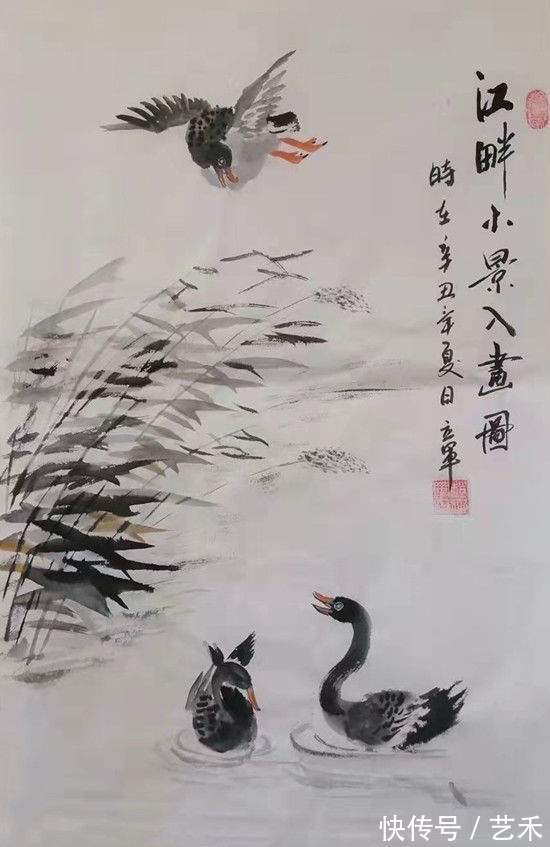 江畔小景入畫圖
時在辛丑年夏日
快传号 / 艺禾